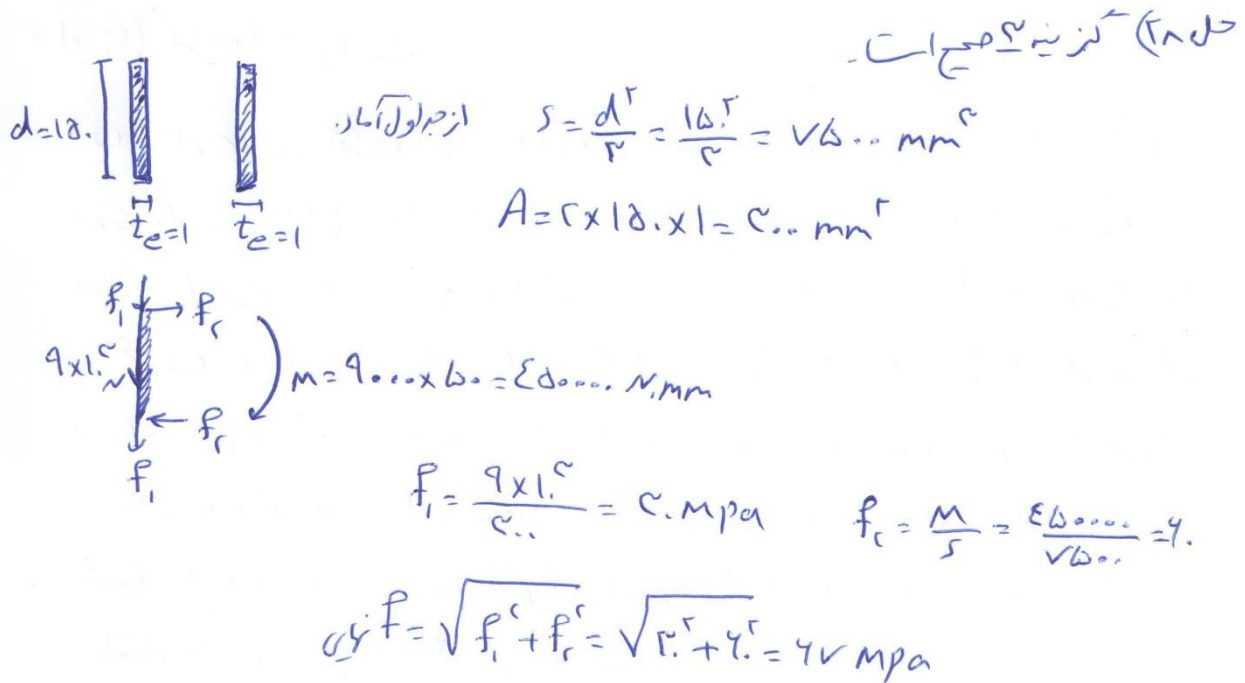 حل ۲۸) گزینه ۳ صحیح است.
d=۱۵۰
از جداول آماده
S = d^۲/۳ = ۱۵۰^۲/۳ = ۷۵۰۰ mm^۳
A = ۲×۱۵۰×۱ = ۳۰۰ mm^۲
te=۱ te=۱
f۱ f۲
۹×۱۰^۳ N
M = ۹۰۰۰×۵۰ = ۴۵۰۰۰۰ N.mm
f۲
f۱
f۱ = ۹×۱۰^۳/۳۰۰ = ۳۰ Mpa f۲ = M/S = ۴۵۰۰۰۰/۷۵۰۰ = ۶۰
f = √(f۱^۲ + f۲^۲) = √(۳۰^۲ + ۶۰^۲) = ۶۷ Mpa